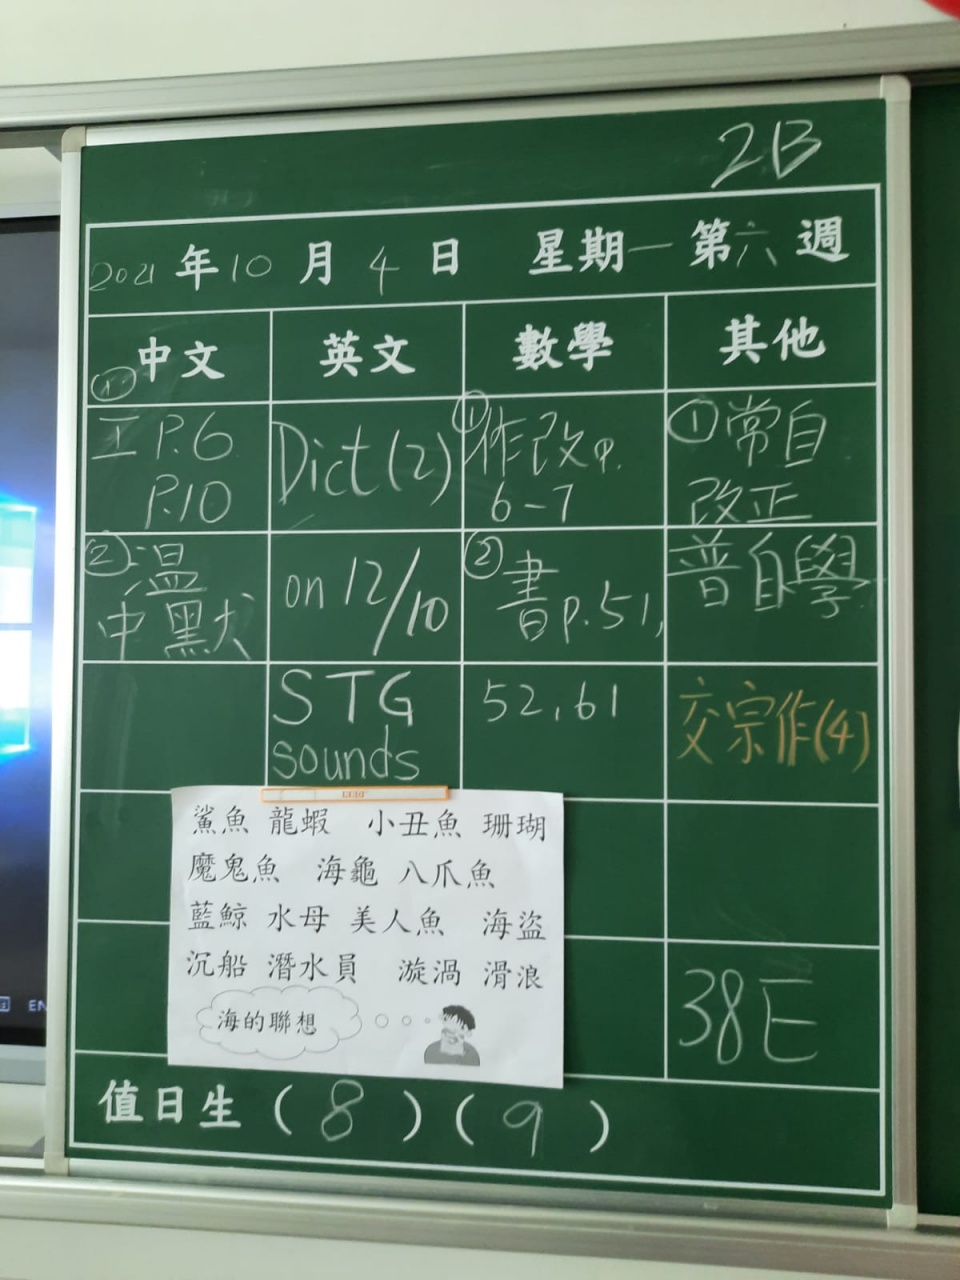 2B
2021 年 10 月 4 日 星期一 第六週
中文 英文 數學 其他
① 工 P.6
P.10
② 溫
中默
Dict (2)
on 12/10
STG
sounds
① 作改 p.
6-7
② 書 p.51,
52,61
① 常自
改正
普自學
交宗作(4)
38E
鯊魚 龍蝦 小丑魚 珊瑚
魔鬼魚 海龜 八爪魚
藍鯨 水母 美人魚 海盜
沉船 潛水員 漩渦 滑浪
海的聯想
值日生 ( 8 ) ( 9 )
EN